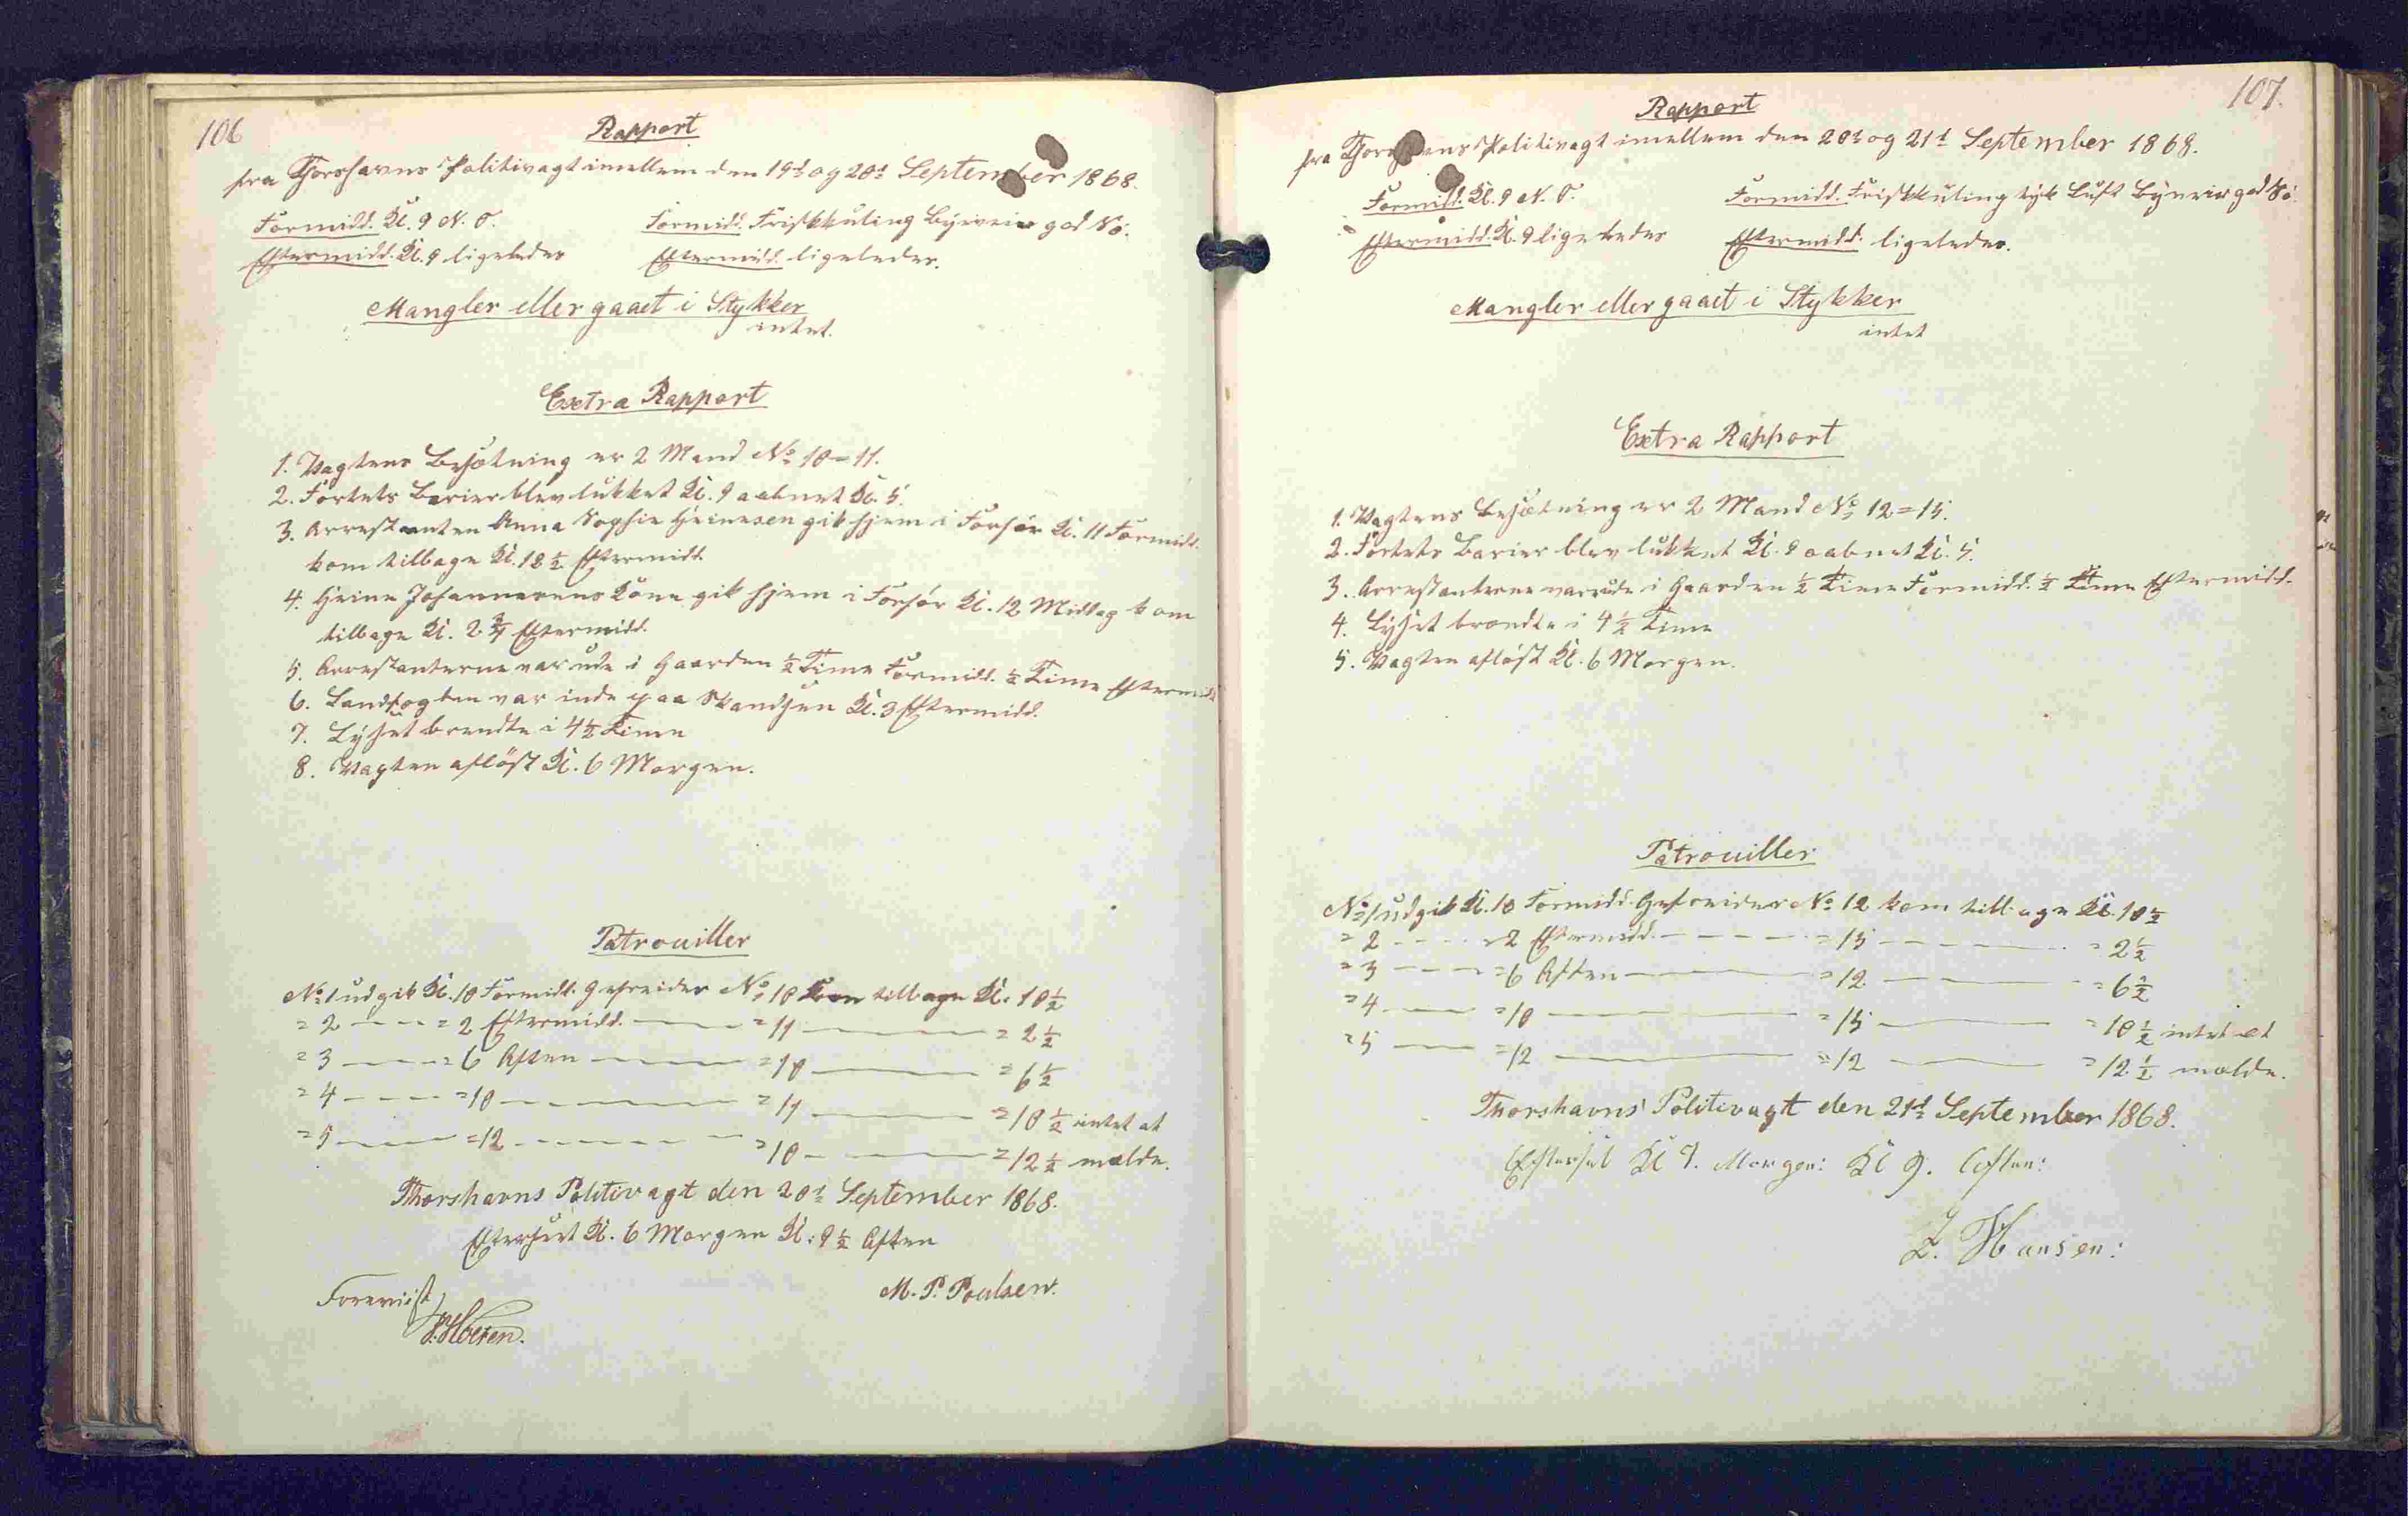 106
Rapport
fra Thorshavns Politivagt imellem den 19d og 20d September 1868.
Formidd. Kl. 9 N. O. Formidd. Friskkuling Byeveir god Sö.
Eftermidd. Kl. 9 ligeledes Eftermidd. ligeledes.
Mangler eller gaaet i Stykker
intet.
Extra Rapport
1. Vagtens Besætning er 2 Mand No 10 = 11.
2. Fortets Barier blev lukket Kl. 9 aabnet Kl. 5.
3. Arrestanten Anna Sophie Heinesen gik hjem i Forhör Kl. 11 Formidd.
kom tilbage Kl. 12 ½ Eftermidd.
4. Heine Johannesens Kone gik hjem i Forhör Kl. 12 Middag kom
tilbage Kl. 2 ¾ Eftermidd.
5. Arrestanterne var ude i Gaarden ½ Time Formidd. ½ Time Eftermidd
6. Landfogden var inde paa Skandsen Kl. 3 Eftermidd.
7. Lyset brendte i 4½ Time
8. Vagten aflöst Kl. 6 Morgen.
Patrouiller
No 1 udgik Kl. 10 Formidd. Gefreider No 10 kom tilbage Kl. 10 ½
= 2 — = 2 Eftermidd. — = 11 — = 2 ½
= 3 — = 6 Aften — = 10 — = 6 ½
= 4 — = 10 — = 11 — = 10 ½ intet at
= 5 — = 12 — = 10 — = 12 ½ melde.
Thorshavns Politivagt den 20d September 1868.
Efterseet Kl. 6 Morgen Kl: 9 ½ Aften
M. P. Poulsen.
Foreviist
107.
Rapport
fra Thorshavns Politivagt imellem den 20d og 21d September 1868.
Formidd. Kl. 9 N. O. Formidd. Friskkuling tyk Luft Byeveir god Sö.
Eftermidd. Kl. 9 ligeledes Eftermidd. ligeledes.
Mangler eller gaaet i Stykker
intet
Extra Rapport
1. Vagtens Besætning er 2 Mand No 12 = 15.
2. Fortets Barier blev lukket Kl. 9 aabnet Kl. 5.
3. Arrestanterne var ude i Gaarden ½ Time Formidd. ½ Time Eftermidd.
4. Lyset brendte i 4 ½ Time
5. Vagten aflöst Kl. 6 Morgen.
Patrouiller
No 1 udgik Kl. 10 Formidd. Gefreider No 12 kom tilbage Kl. 10 ½
= 2 — = 2 Eftermidd. — = 15 — = 2 ½
= 3 — = 6 Aften — = 12 — = 6 ½
= 4 — = 10 — = 15 — = 10 ½ intet at
= 5 — = 12 — = 12 — = 12 ½ melde.
Thorshavns Politivagt den 21d September 1868.
Efterset Kl 7. Morgen: Kl 9. Aften:
Z. Hansen: